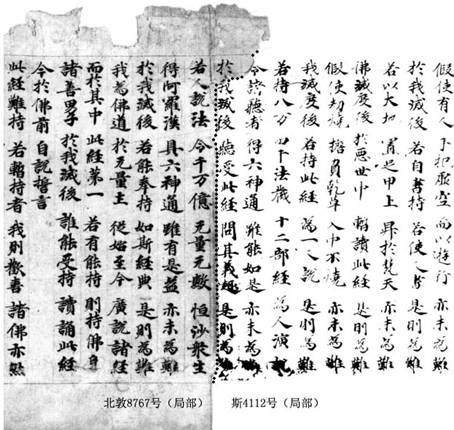 假使有人 手把虛空 而以遊行 亦未為難
於我滅後 若自書持 若使人書 是則為難
若以大地 置足甲上 昇於梵天 亦未為難
佛滅度後 於惡世中 暫讀此經 是則為難
假使劫燒 擔負乾草 入中不燒 亦未為難
我滅度後 若持此經 為一人說 是則為難
若持八万 四千法藏 十二部經 為人演
令諸聽者 得六神通 雖能如是 亦未為難
於我滅後 聽受此經 問其義趣 是則為難
若人說法 令千万億 无量无數 恒沙衆生
得阿羅漢 具六神通 雖有是益 亦未為難
於我滅後 若能奉持 如斯經典 是則為難
我為佛道 於无量土 從始至今 廣說諸經
而於其中 此經第一 若有能持 則持佛身
諸善男子 於我滅後 誰能受持 讀誦此經
今於佛前 自說誓言
此經難持 若暫持者 我則歡喜 諸佛亦然
北敦8767号（局部） 斯4112号（局部）